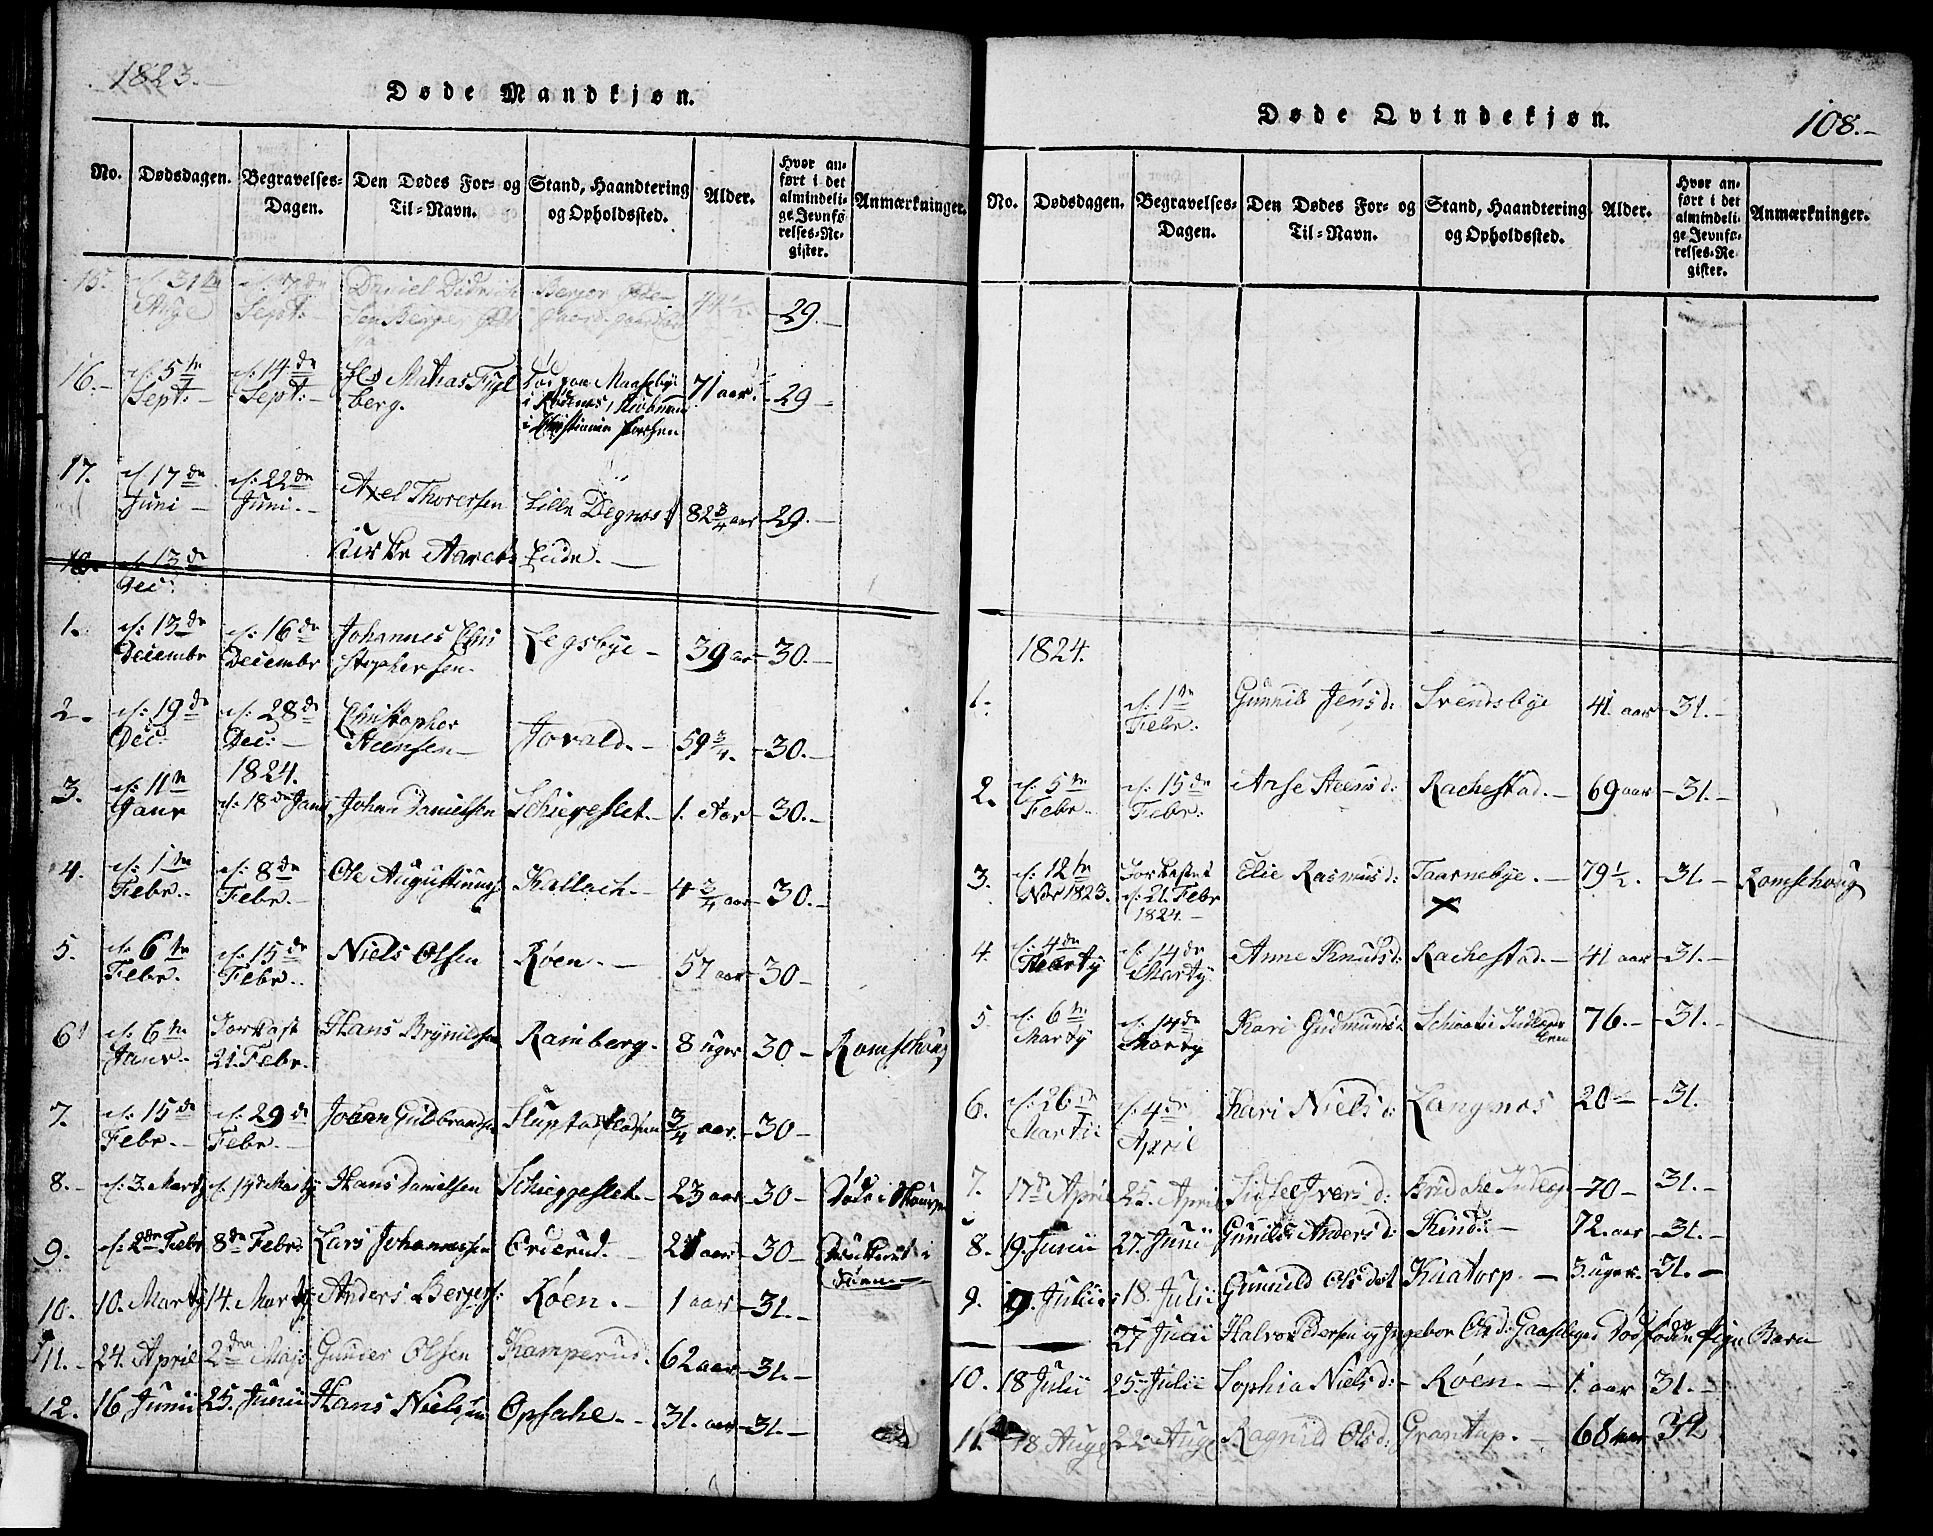 1823.
Døde Mandkjøn.
No. Dødsdagen. Begravelses-Dagen. Den Dødes For- og Til-Navn. Stand, Haandtering og Opholdssted. Alder. Hvor anført i det almindelige Jevnførelses-Register. Anmærkninger.
15. d: 31te Aug d: 7de Sept: Daniel Didrich 44 1/2. 29.
16. d: 5te Sept: d: 14de Sept: Mathias Fugl berg. 71 aar. 29
17. d 17de Juni d: 22de Juni. Axel Thorersen Lille Degnes 82 3/4 aar 29.
18. d 13de Dec:
1. d: 13de Decembr d: 16de Decembr Johannes Chri stophersen. Legsbye 39 aar 30.
2. d: 19de Dec: d: 28de Dec: Christopher Steensen Torvald. 59 3/4. 30.
1824.
3. d: 11te Janr d: 18de Janr Johan Danielsen Schiereslet. 1. Aar 30.
4. d: 1te Febr. d: 8de Febr. Ole Augustinus Kallach. 4 3/4 aar 30.
5. d: 6te Febr. d: 15de Febr. Niels Olsen Røen. 57 aar 30
6 d: 6te Janr. Jordkast 21. Febr. Hans Brynildsen Ramberg. 8 uger 30 Romschoug
7. d: 15de Febr. d: 29de Febr. Johan Guldbrands 3/4 aar. 30
8. d: 3. Marty d. 14de Marty Hans Danielsen Schieggeslet. 23 aar 30 Døde i
9. d: 2de Febr 8de Febr: Lars Johannessen Ørderud. 21 aar 30
10. 10. Marty 14. Marty Anders Bergers: Røen. 1 aar 31.
11. 24. April 2den Maji Gunder Olsen Kamperud. 62 aar 31.
12. 16 Junii 25. Junii Hans Nielsen Opsahe. 31. aar 31.
Døde Qvindekjøn.
108.
No. Dødsdagen. Begravelses-Dagen. Den Dødes For- og Til-Navn. Stand, Haandtering og Opholdssted. Alder. Hvor anført i det almindelige Jevnførelses-Register. Anmærkninger.
1824.
1. d. 1te Febr: Gunnil Jensd: Svendsbye 41 aar 31.
2. d: 5te Febr. d: 15de Febr: Anse Steensd: Rachestad. 69 aar 31.
3. d: 12te Nbr 1823. Jordkastet d: 21. Febr 1824. Elie Rasmusd: Taarnebye. 79 1/2. 31. Romschoug
4. d: 4de Marty d: 14de Marty Anne Knudsd: Rachestad. 41 aar 31.
5. d: 6te Marty d: 14de Marty Kari Gudmunds 76. 31.
6. d: 26de Martii d: 4de April Kari Nielsd: Langnæs 20 31.
7. 17de April 25. April Sidsel Iversd: 70 31.
8. 19. Junii 27. Junii Gunild Andersd: Kind: 72. aar 31.
9. 9. Julii 18. Julii Gunnild Olsdat Knatorp. 3. uger. 31.
27 Julii Halvor Pedersen og Ingebor Olsd: Dødfødt Pige Barn
10. 18 Julii 25. Julii Sophia Nielsd: Røen. 1. aar 31.
11. 18 Aug 22 Aug Ragnild Olsd: Grantop. 68 aar 32